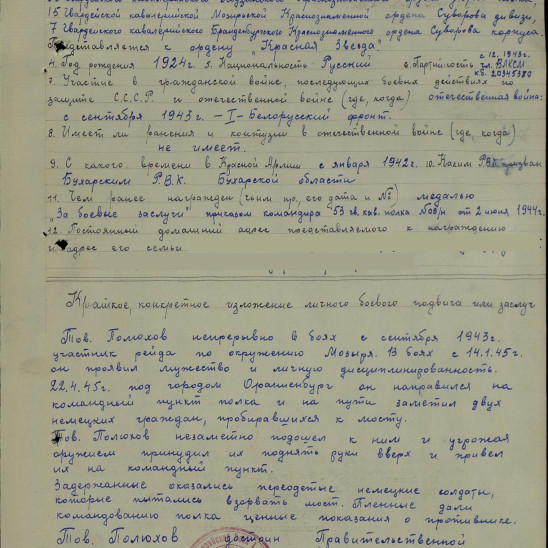 15 Гвардейской кавалерийской Мозырьской Краснознаменной ордена Суворова дивизи,
7 Гвардейского кавалерийского Бранденбургского Краснознаменного ордена Суворова корпуса.
Представляется к ордену "Красная Звезда"
4. Год рождения 1924г. 5. Национальность Русский 6. Партийность с 12.1943г. чл. ВЛКСМ к.б. 20345380
7. Участие в гражданской войне, последующих боевых действиях по
защите С.С.С.Р. и отечественной войне (где, когда) отечественная война:
с сентября 1943г. – I – Белорусский фронт.
8. Имеет ли ранения и контузии в отечественной войне (где, когда)
не имеет.
9. С какого времени в Красной Армии с января 1942г. 10. Каким РВК призван
Бухарским Р.В.К. Бухарской области
11. Чем ранее награжден (чьим пр., его дата и №) медалью
"За боевые заслуги" приказом командира 53 гв. кав. полка №03/н от 2 июня 1944г.
12. Постоянный домашний адрес представляемого к награждению
и адрес его семьи
Краткое, конкретное изложение личного боевого подвига или заслуг
Тов. Полюхов непрерывно в боях с сентября 1943г.
участник рейда по окружению Мозыря. В боях с 14.1.45г.
он проявил мужество и личную дисциплинированность.
22.4.45г. под городом Ораниенбург он направился на
командный пункт полка и на пути заметил двух
немецких граждан, пробиравшихся к мосту.
Тов. Полюхов незаметно подошел к ним и угрожая
оружием принудил их поднять руки вверх и привел
их на командный пункт.
Задержанные оказались переодетые немецкие солдаты,
которые пытались взорвать мост. Пленные дали
командованию полка ценные показания о противнике.
Тов. Полюхов достоин Правительственной